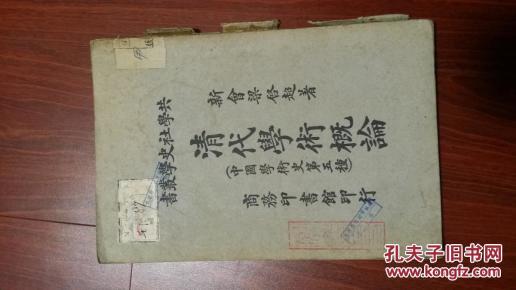 共學社史學叢書
新會梁啓超著
清代學術概論
(中國學術史第五種)
商務印書館印行
孔夫子旧书网
www.kongfz.com